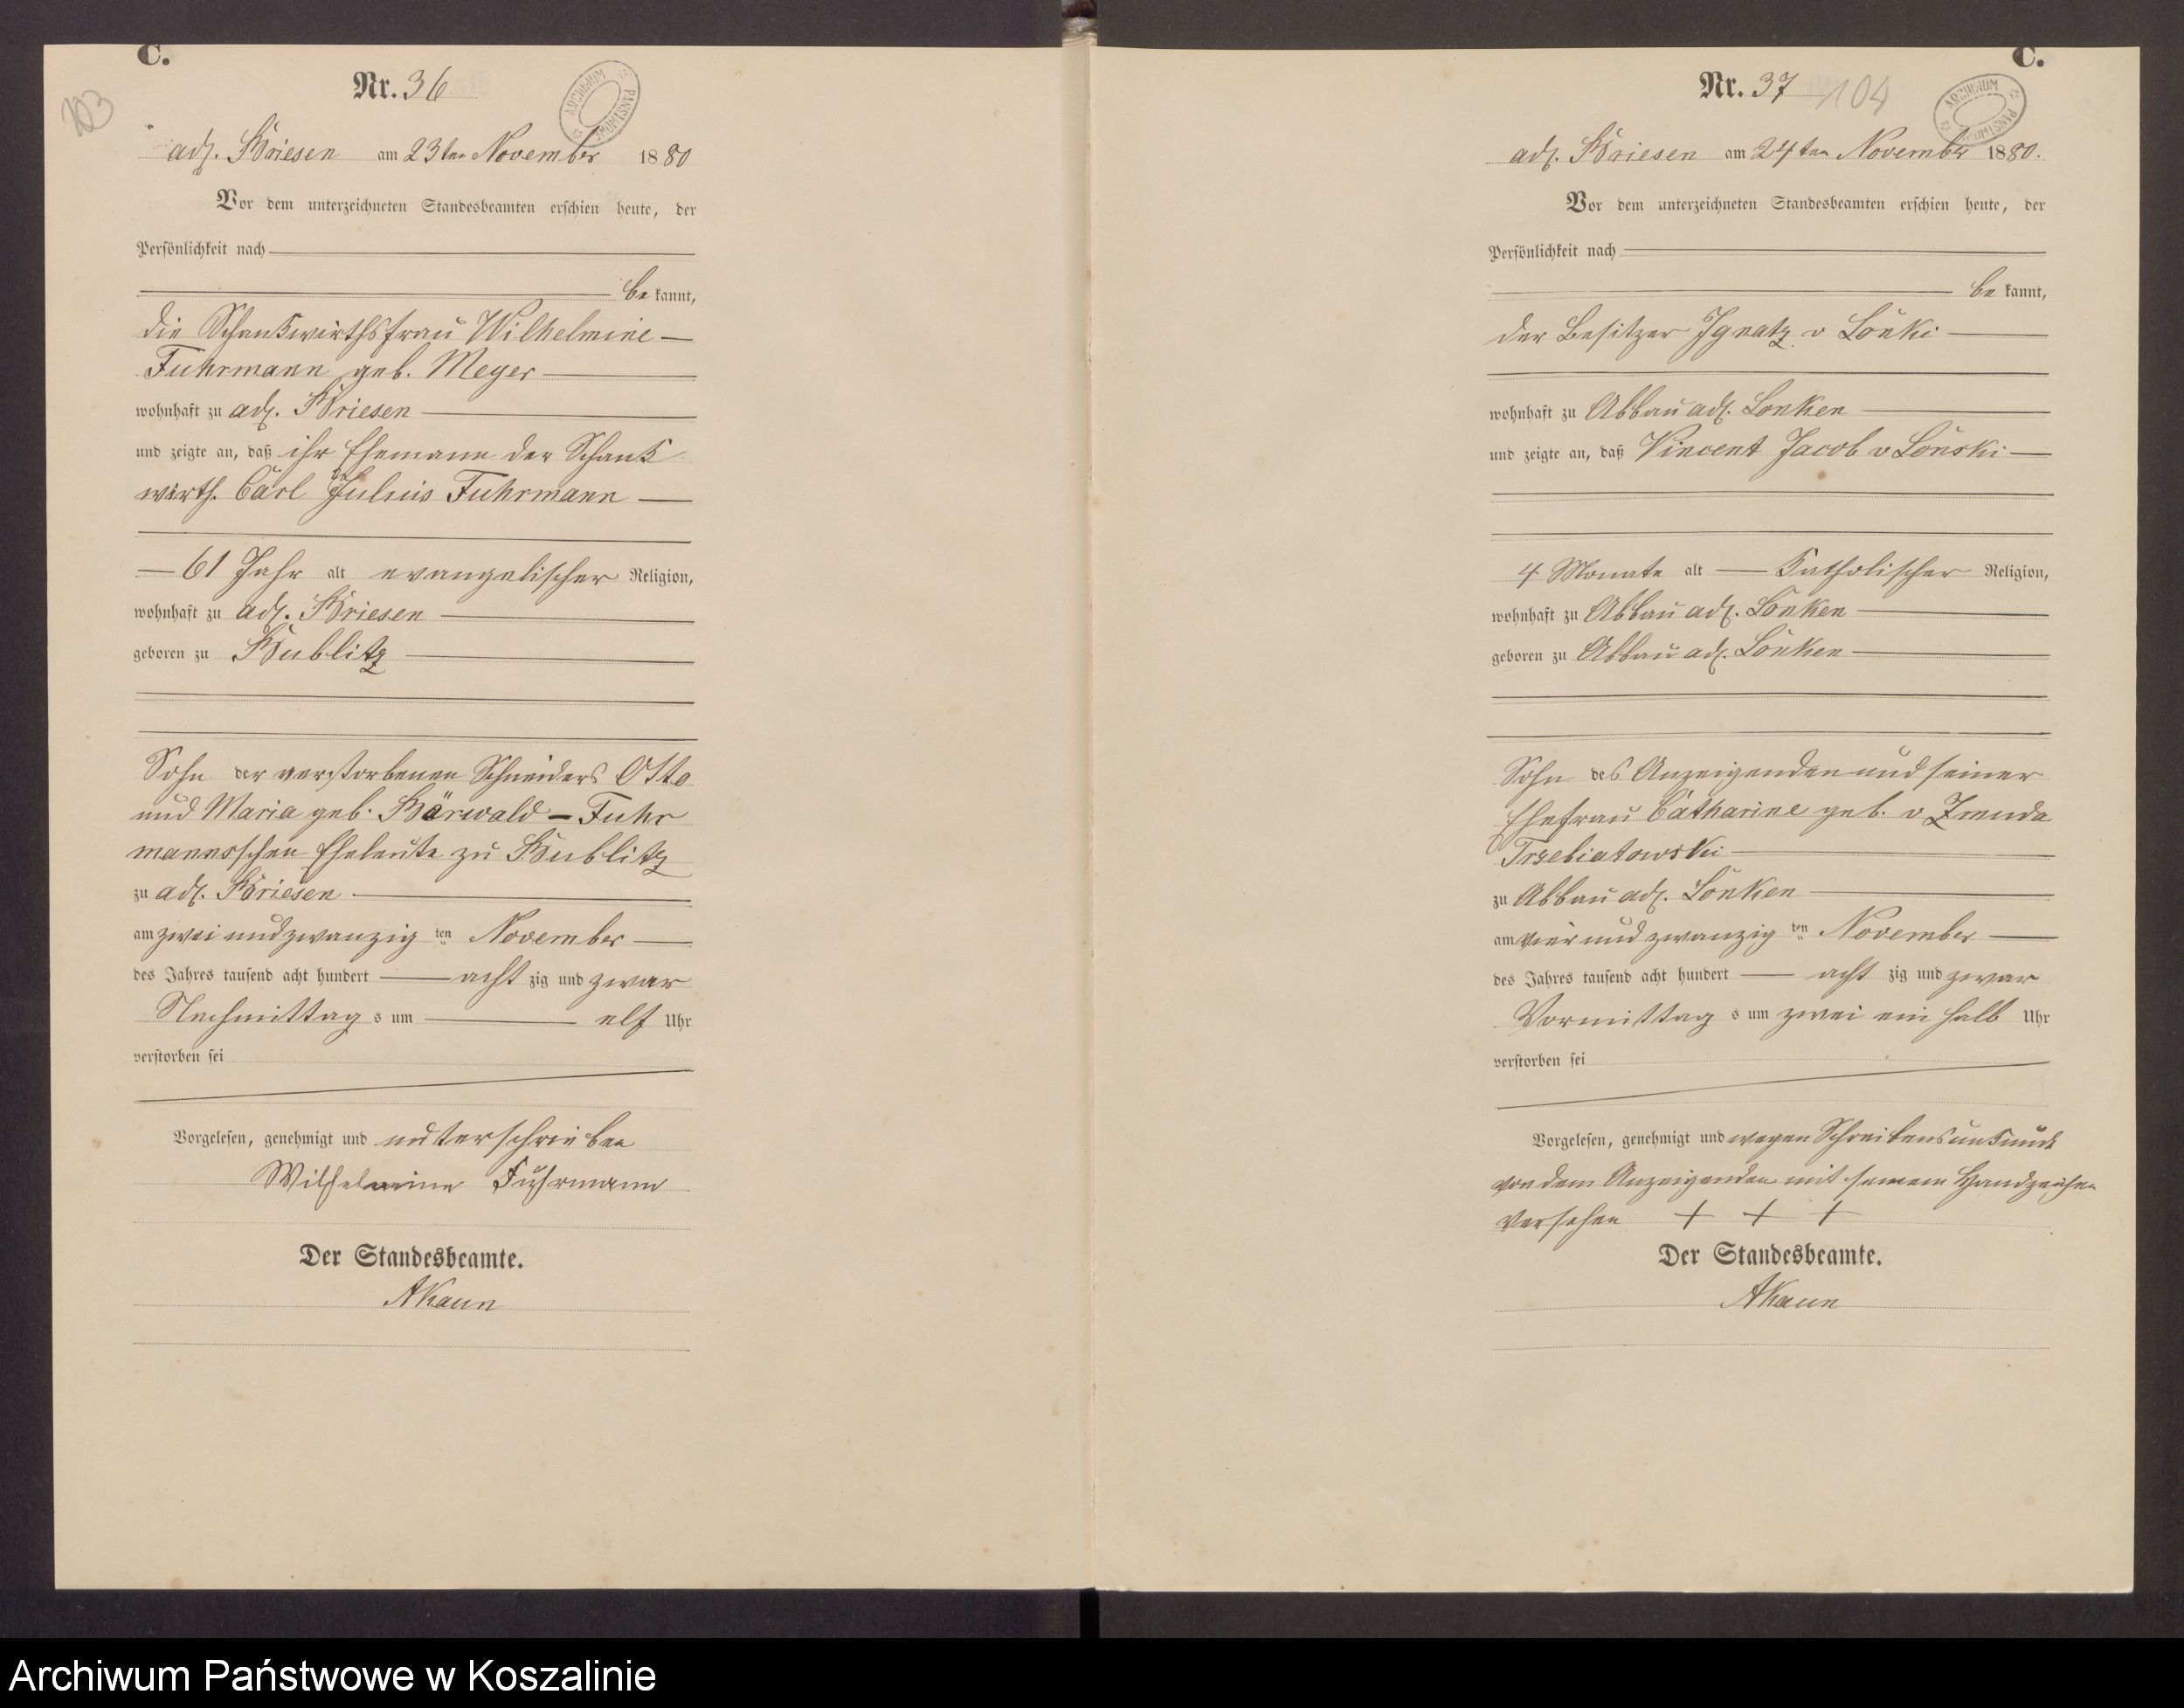 C.
103
Nr. 36
ARCHIWUM PAŃSTWOWE
adl. Briesen am 23ten November 1880
Vor dem unterzeichneten Standesbeamten erschien heute, der
Persönlichkeit nach
be kannt,
die Schankwirthsfrau Wilhelmine
Fuhrmann geb. Meyer
wohnhaft zu adl. Briesen
und zeigte an, daß ihr Ehemann der Schank
wirth Carl Julius Fuhrmann
61 Jahr alt evangelischer Religion,
wohnhaft zu adl. Briesen
geboren zu Bublitz
Sohn der verstorbenen Schneiders Otto
und Maria geb. Bärwald - Fuhr
mannsschen Eheleute zu Bublitz
zu adl. Briesen
am zwei und zwanzig ten November
des Jahres tausend acht hundert acht zig und zwar
Nachmittag s um elf Uhr
verstorben sei
Vorgelesen, genehmigt und unterschrieben
Wilhelmine Fuhrmann
Der Standesbeamte.
C.
Nr. 37
104
ARCHIWUM PAŃSTWOWE
adl. Briesen am 24ten November 1880.
Vor dem unterzeichneten Standesbeamten erschien heute, der
Persönlichkeit nach
be kannt,
der Besitzer Ignatz v
wohnhaft zu Abbau adl. Lonken
und zeigte an, daß Vincent Jacob v Lonski
4 Monate alt Katholischer Religion,
wohnhaft zu Abbau adl. Lonken
geboren zu Abbau adl. Lonken
Sohn des Anzeigenden und seiner
Ehefrau Catharine geb. v Zmuda
Trzebiatowski
zu Abbau adl. Lonken
am vier und zwanzig ten November
des Jahres tausend acht hundert acht zig und zwar
Vormittag s um zwei ein halb Uhr
verstorben sei
Vorgelesen, genehmigt und wegen Schreibensunkunde
von dem Anzeigenden mit seinem Handzeichen
versehen + + +
Der Standesbeamte.
Archiwum Państwowe w Koszalinie